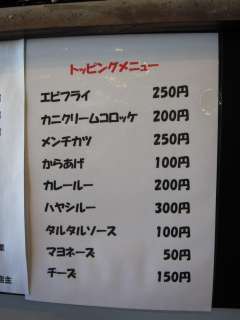 トッピングメニュー
エビフライ 250円
カニクリームコロッケ 200円
メンチカツ 250円
からあげ 100円
カレールー 200円
ハヤシルー 300円
タルタルソース 100円
マヨネーズ 50円
チーズ 150円
店主